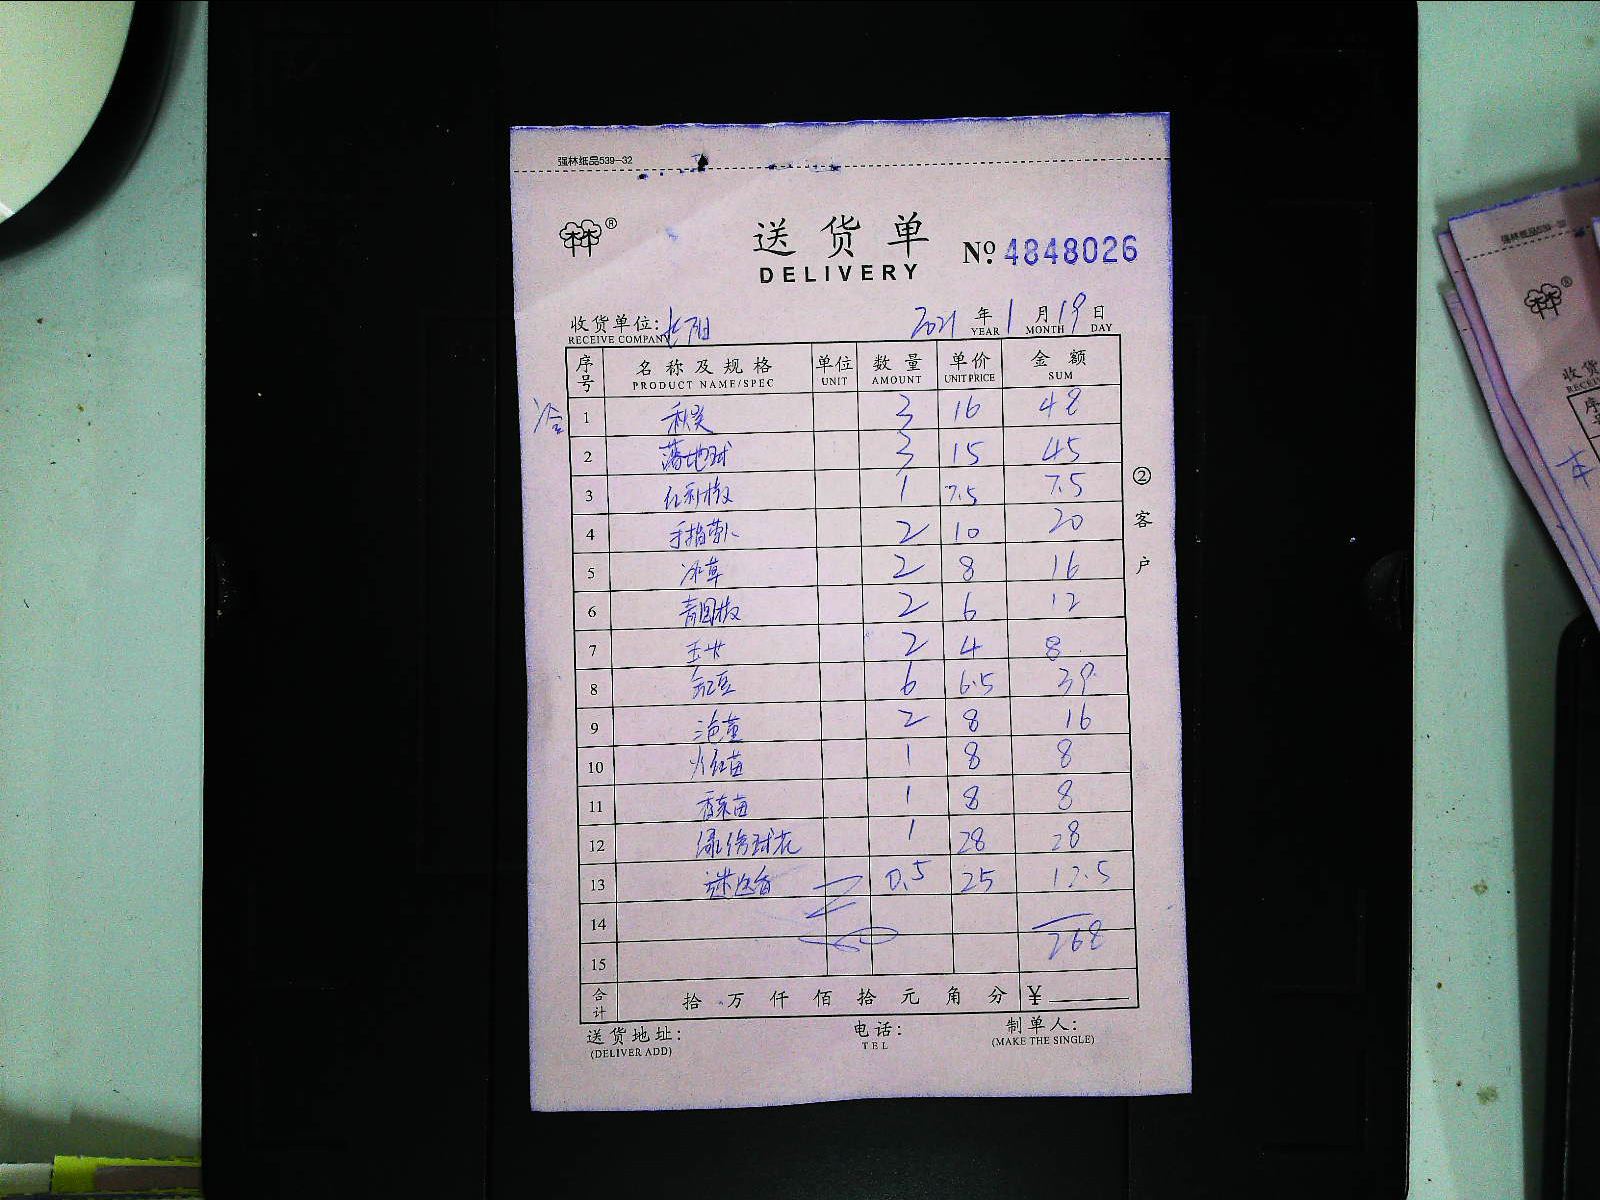 强林纸品539-32
送货单
DELIVERY
No. 4848026
收货单位: 长阳 2021 年 1 月 19 日
RECEIVE COMPANY YEAR MONTH DAY
序号 名称及规格 单位 数量 单价 金额
PRODUCT NAME/SPEC UNIT AMOUNT UNIT PRICE SUM
冷 1 秋葵 3 16 48
2 落地球 3 15 45
3 红利椒 1 7.5 7.5
4 手指萝卜 2 10 20
5 冰草 2 8 16
6 青圆椒 2 6 12
7 2 4 8
8 豆 6 6.5 39
9 2 8 16
10 苗 1 8 8
11 苗 1 8 8
12 绿绣球花 1 28 28
13 迷迭香 0.5 25 12.5
14
15 268
合计 拾 万 仟 佰 拾 元 角 分 ¥
送货地址: 电话: 制单人:
(DELIVER ADD) TEL (MAKE THE SINGLE)
②客户
强林纸品539-32
收货
RECEIV
序号